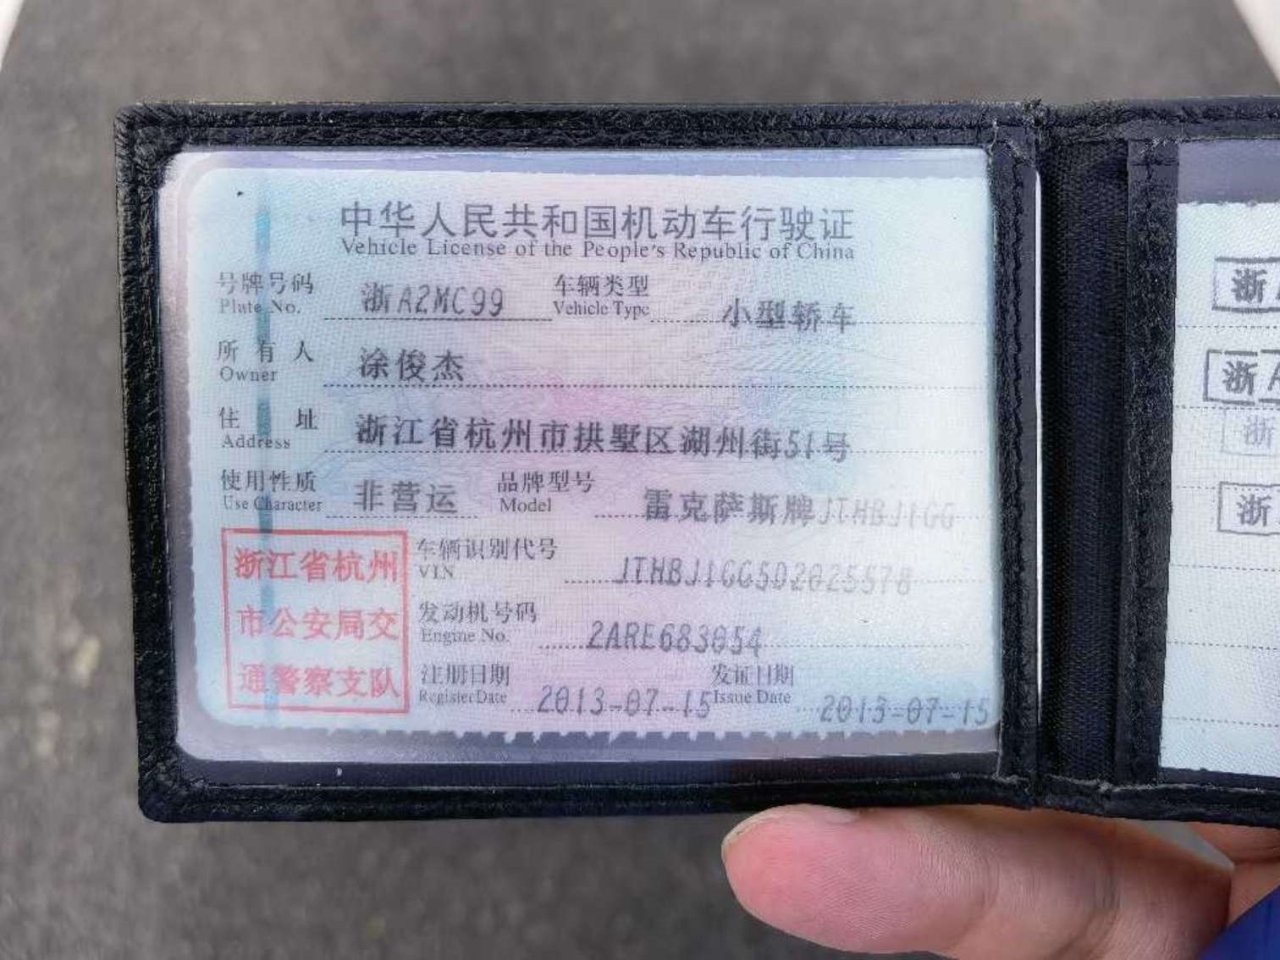 中华人民共和国机动车行驶证
Vehicle License of the People's Republic of China
号牌号码 浙A2MC99 车辆类型 小型轿车
Plate No. Vehicle Type
所有人 涂俊杰
Owner
住址 浙江省杭州市拱墅区湖州街51号
Address
使用性质 非营运 品牌型号 雷克萨斯牌JTHBJ1GG
Use Character Model
浙江省杭州
市公安局交
通警察支队
车辆识别代号 JTHBJ1GG5D2025578
VIN
发动机号码 2ARE683054
Engine No.
注册日期 2013-07-15 发证日期 2013-07-15
Register Date Issue Date
浙A
浙A
浙
浙